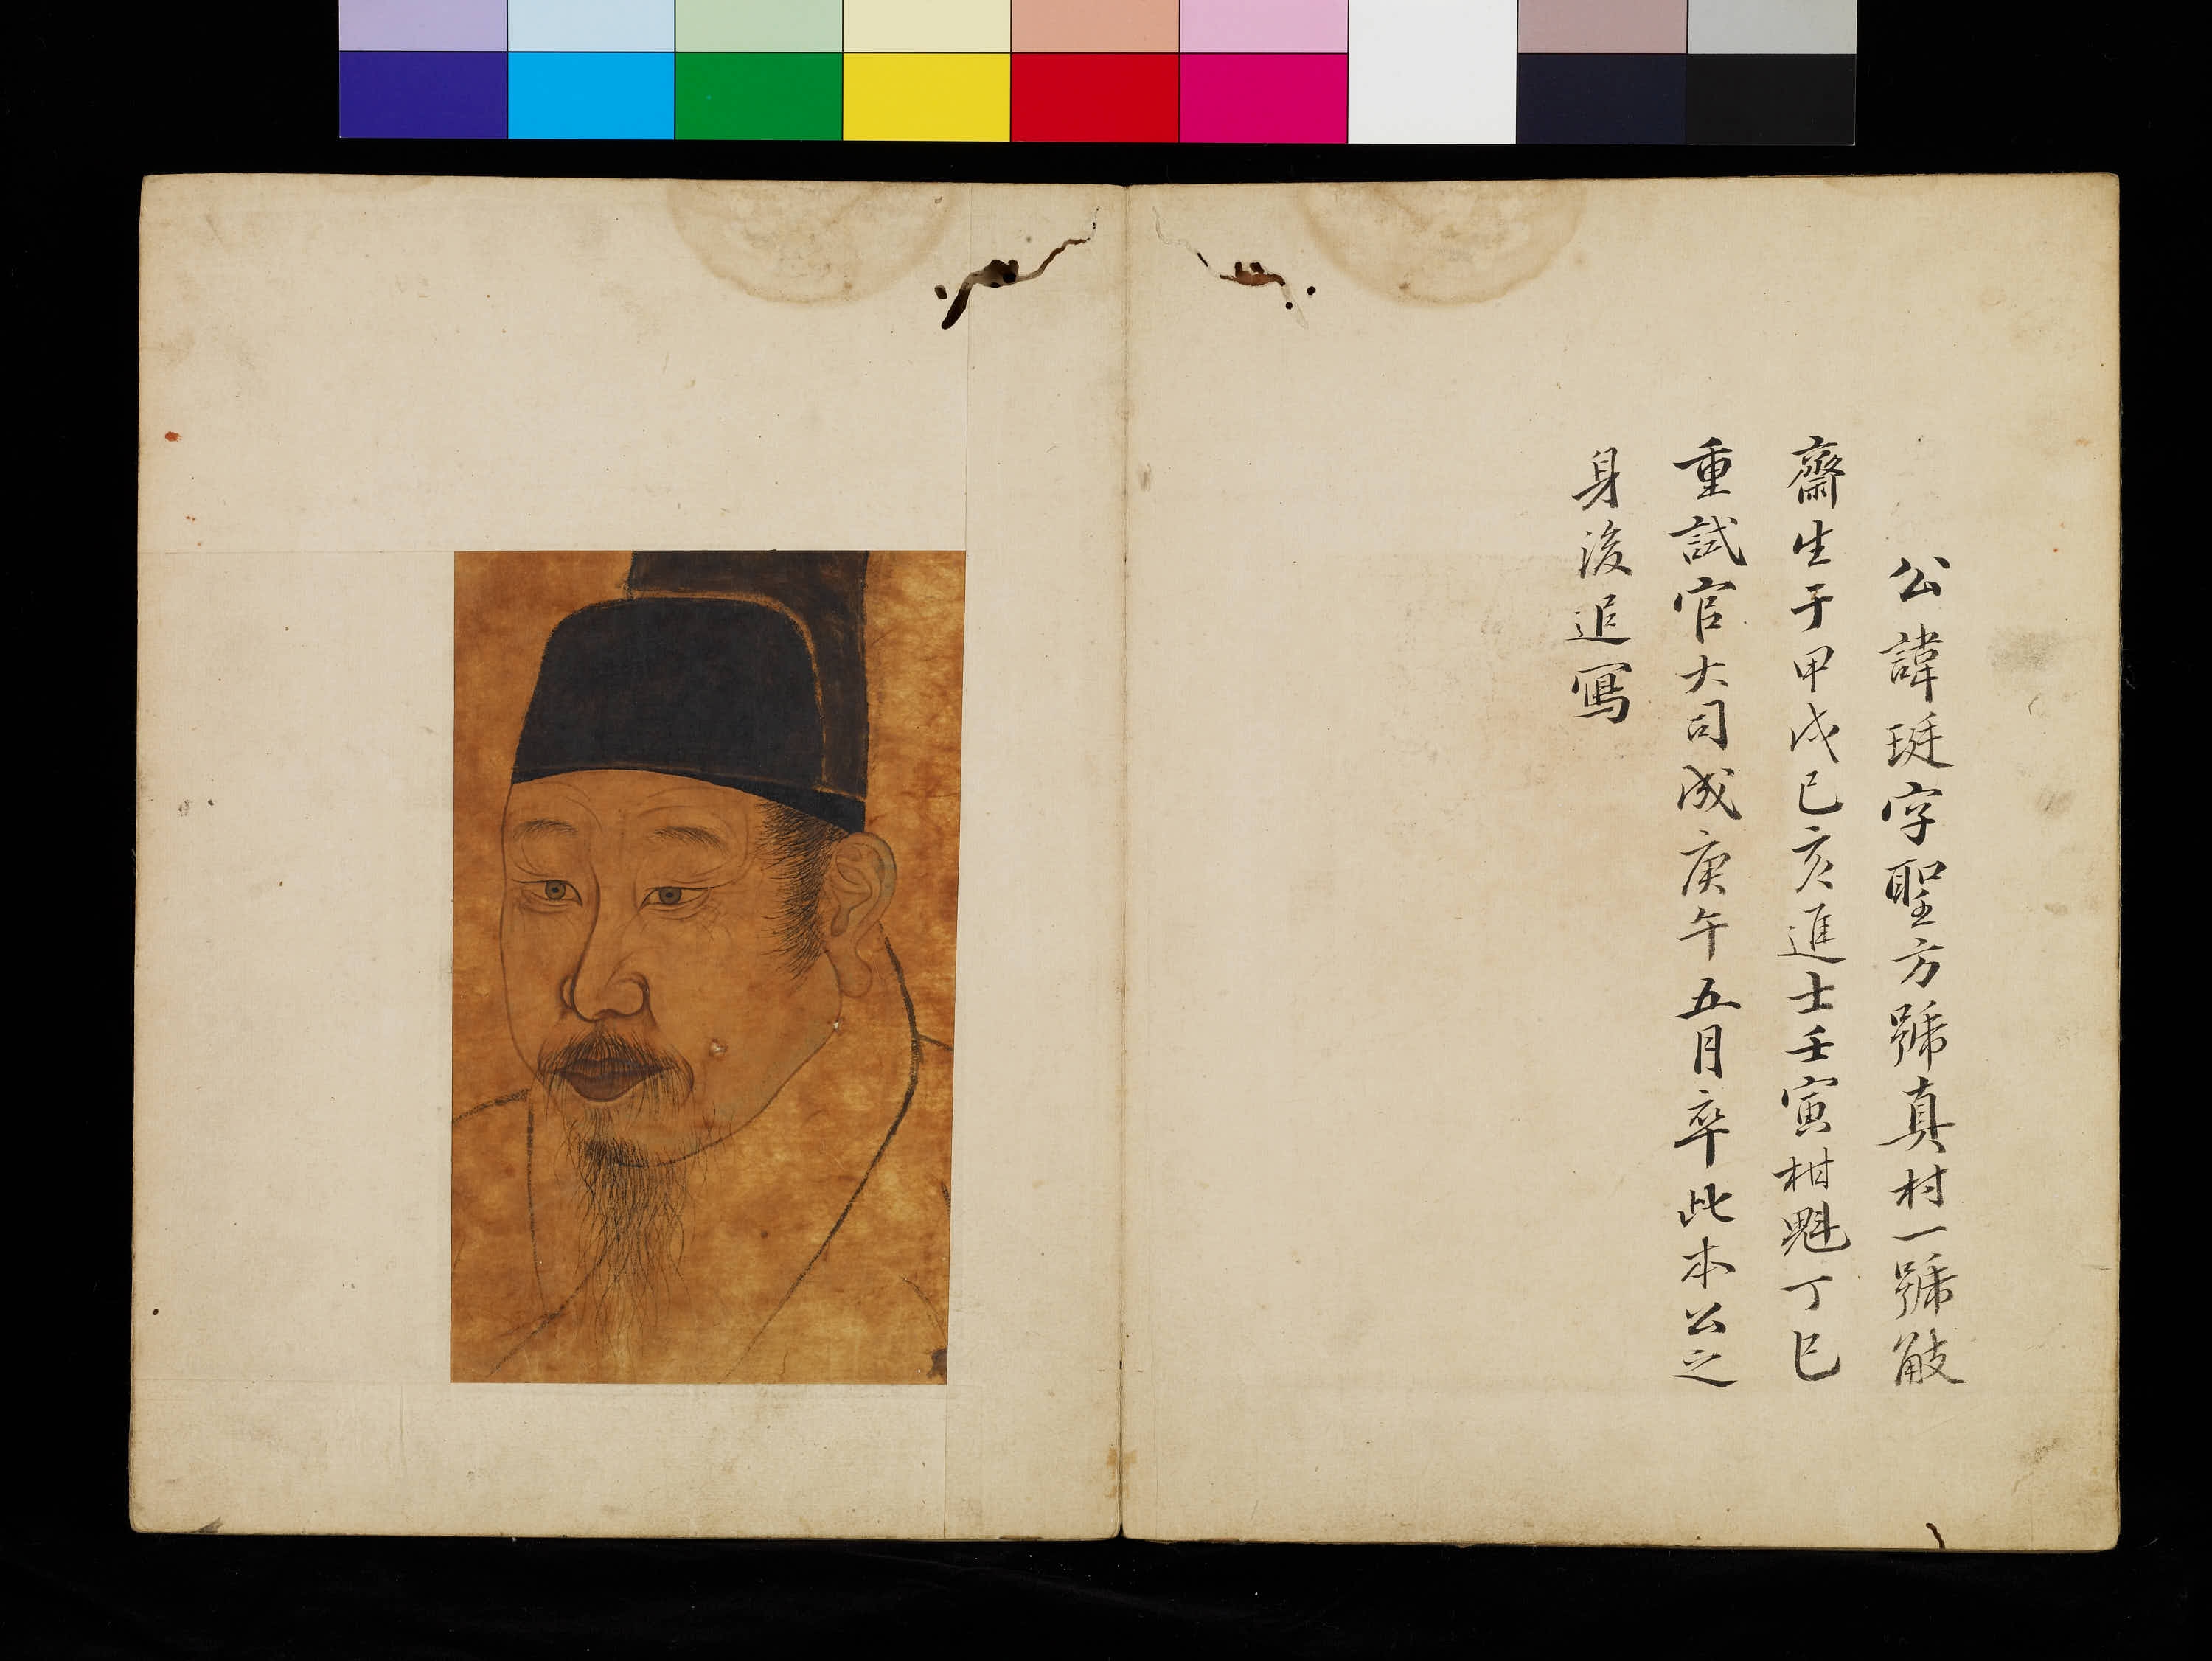 公諱珽字聖方號真村一號觙
齋生于甲戌己亥進士壬寅柑魁丁巳
重試官大司成庚午五月卒此本公之
身後追寫